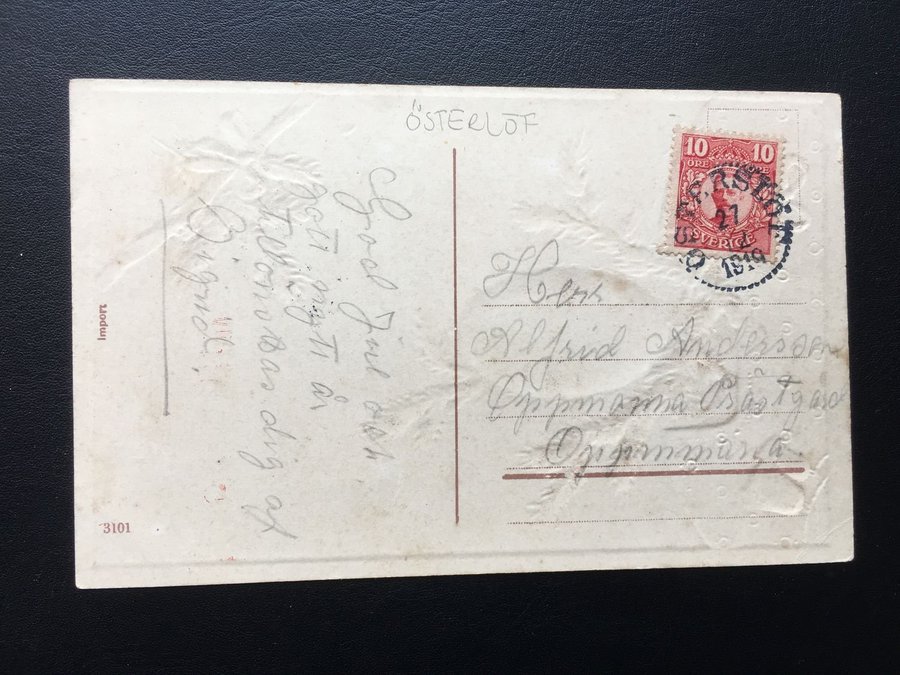 ÖSTERLÖF
God Jul och
gott nytt år
tillönskas dig af
Signe.
Import
3101
10 10
ÖRE
SVERIGE
ÖSTERSLÖF
27
1
1919
Herr
Alfrid Andersson
Oppmanna Prästgård
Oppmanna.